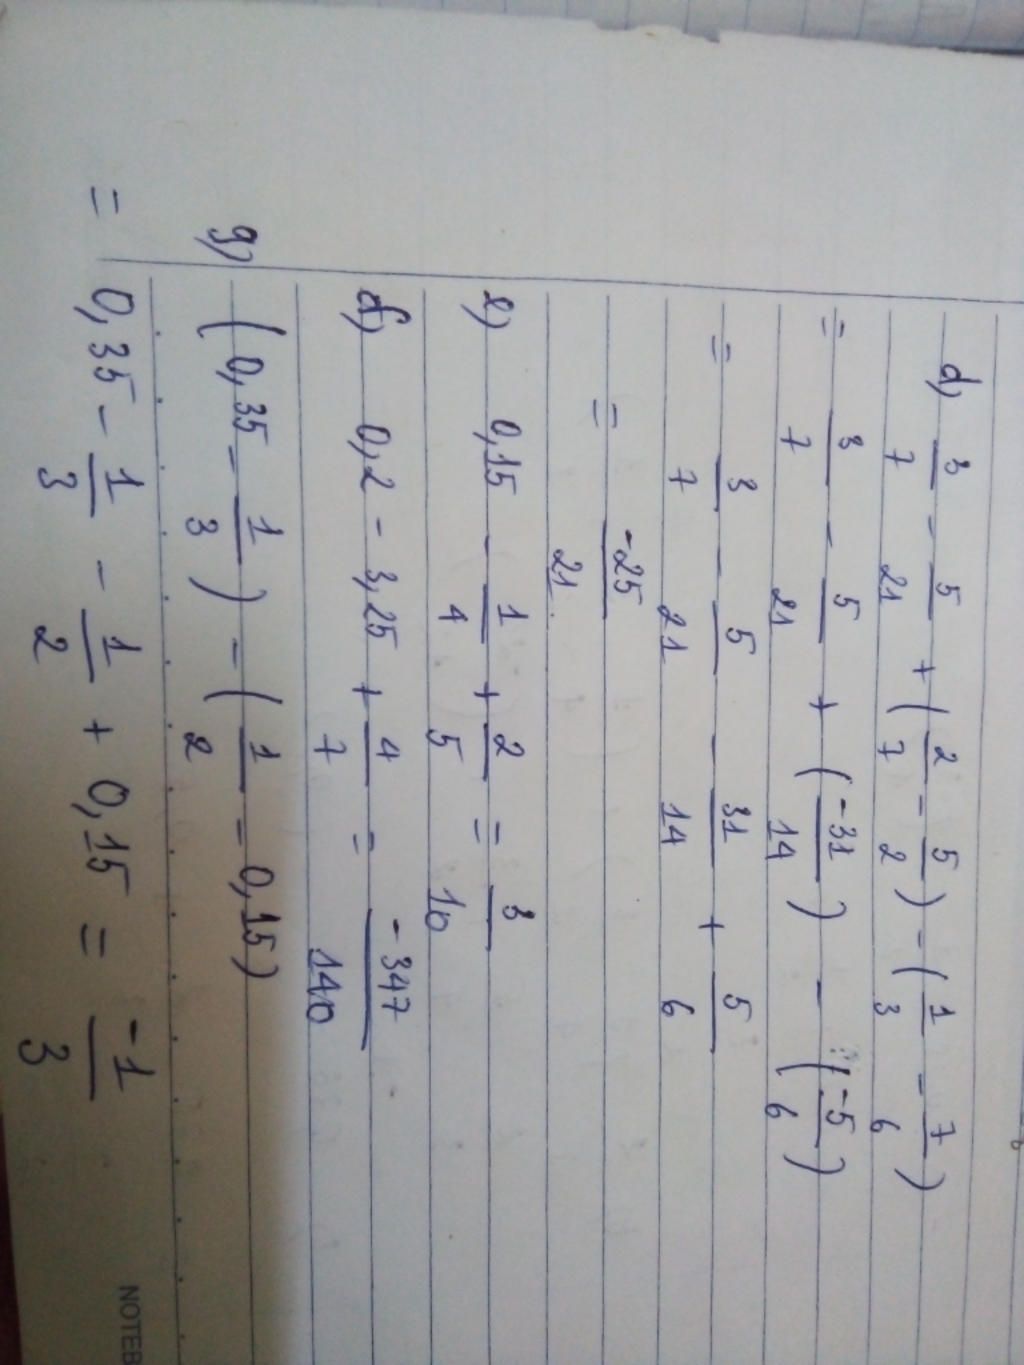 d) 3/7 - 5/21 + (2/7 - 5/2) - (1/3 - 7/6)
= 3/7 - 5/21 + (-31/14) - (-5/6)
= 3/7 - 5/21 - 31/14 + 5/6
= -25/21
e) 0,15 - 1/4 + 2/5 = 3/10
f) 0,2 - 3,25 + 4/7 = -347/140
g) (0,35 - 1/3) - (1/2 - 0,15)
= 0,35 - 1/3 - 1/2 + 0,15 = -1/3
NOTEB